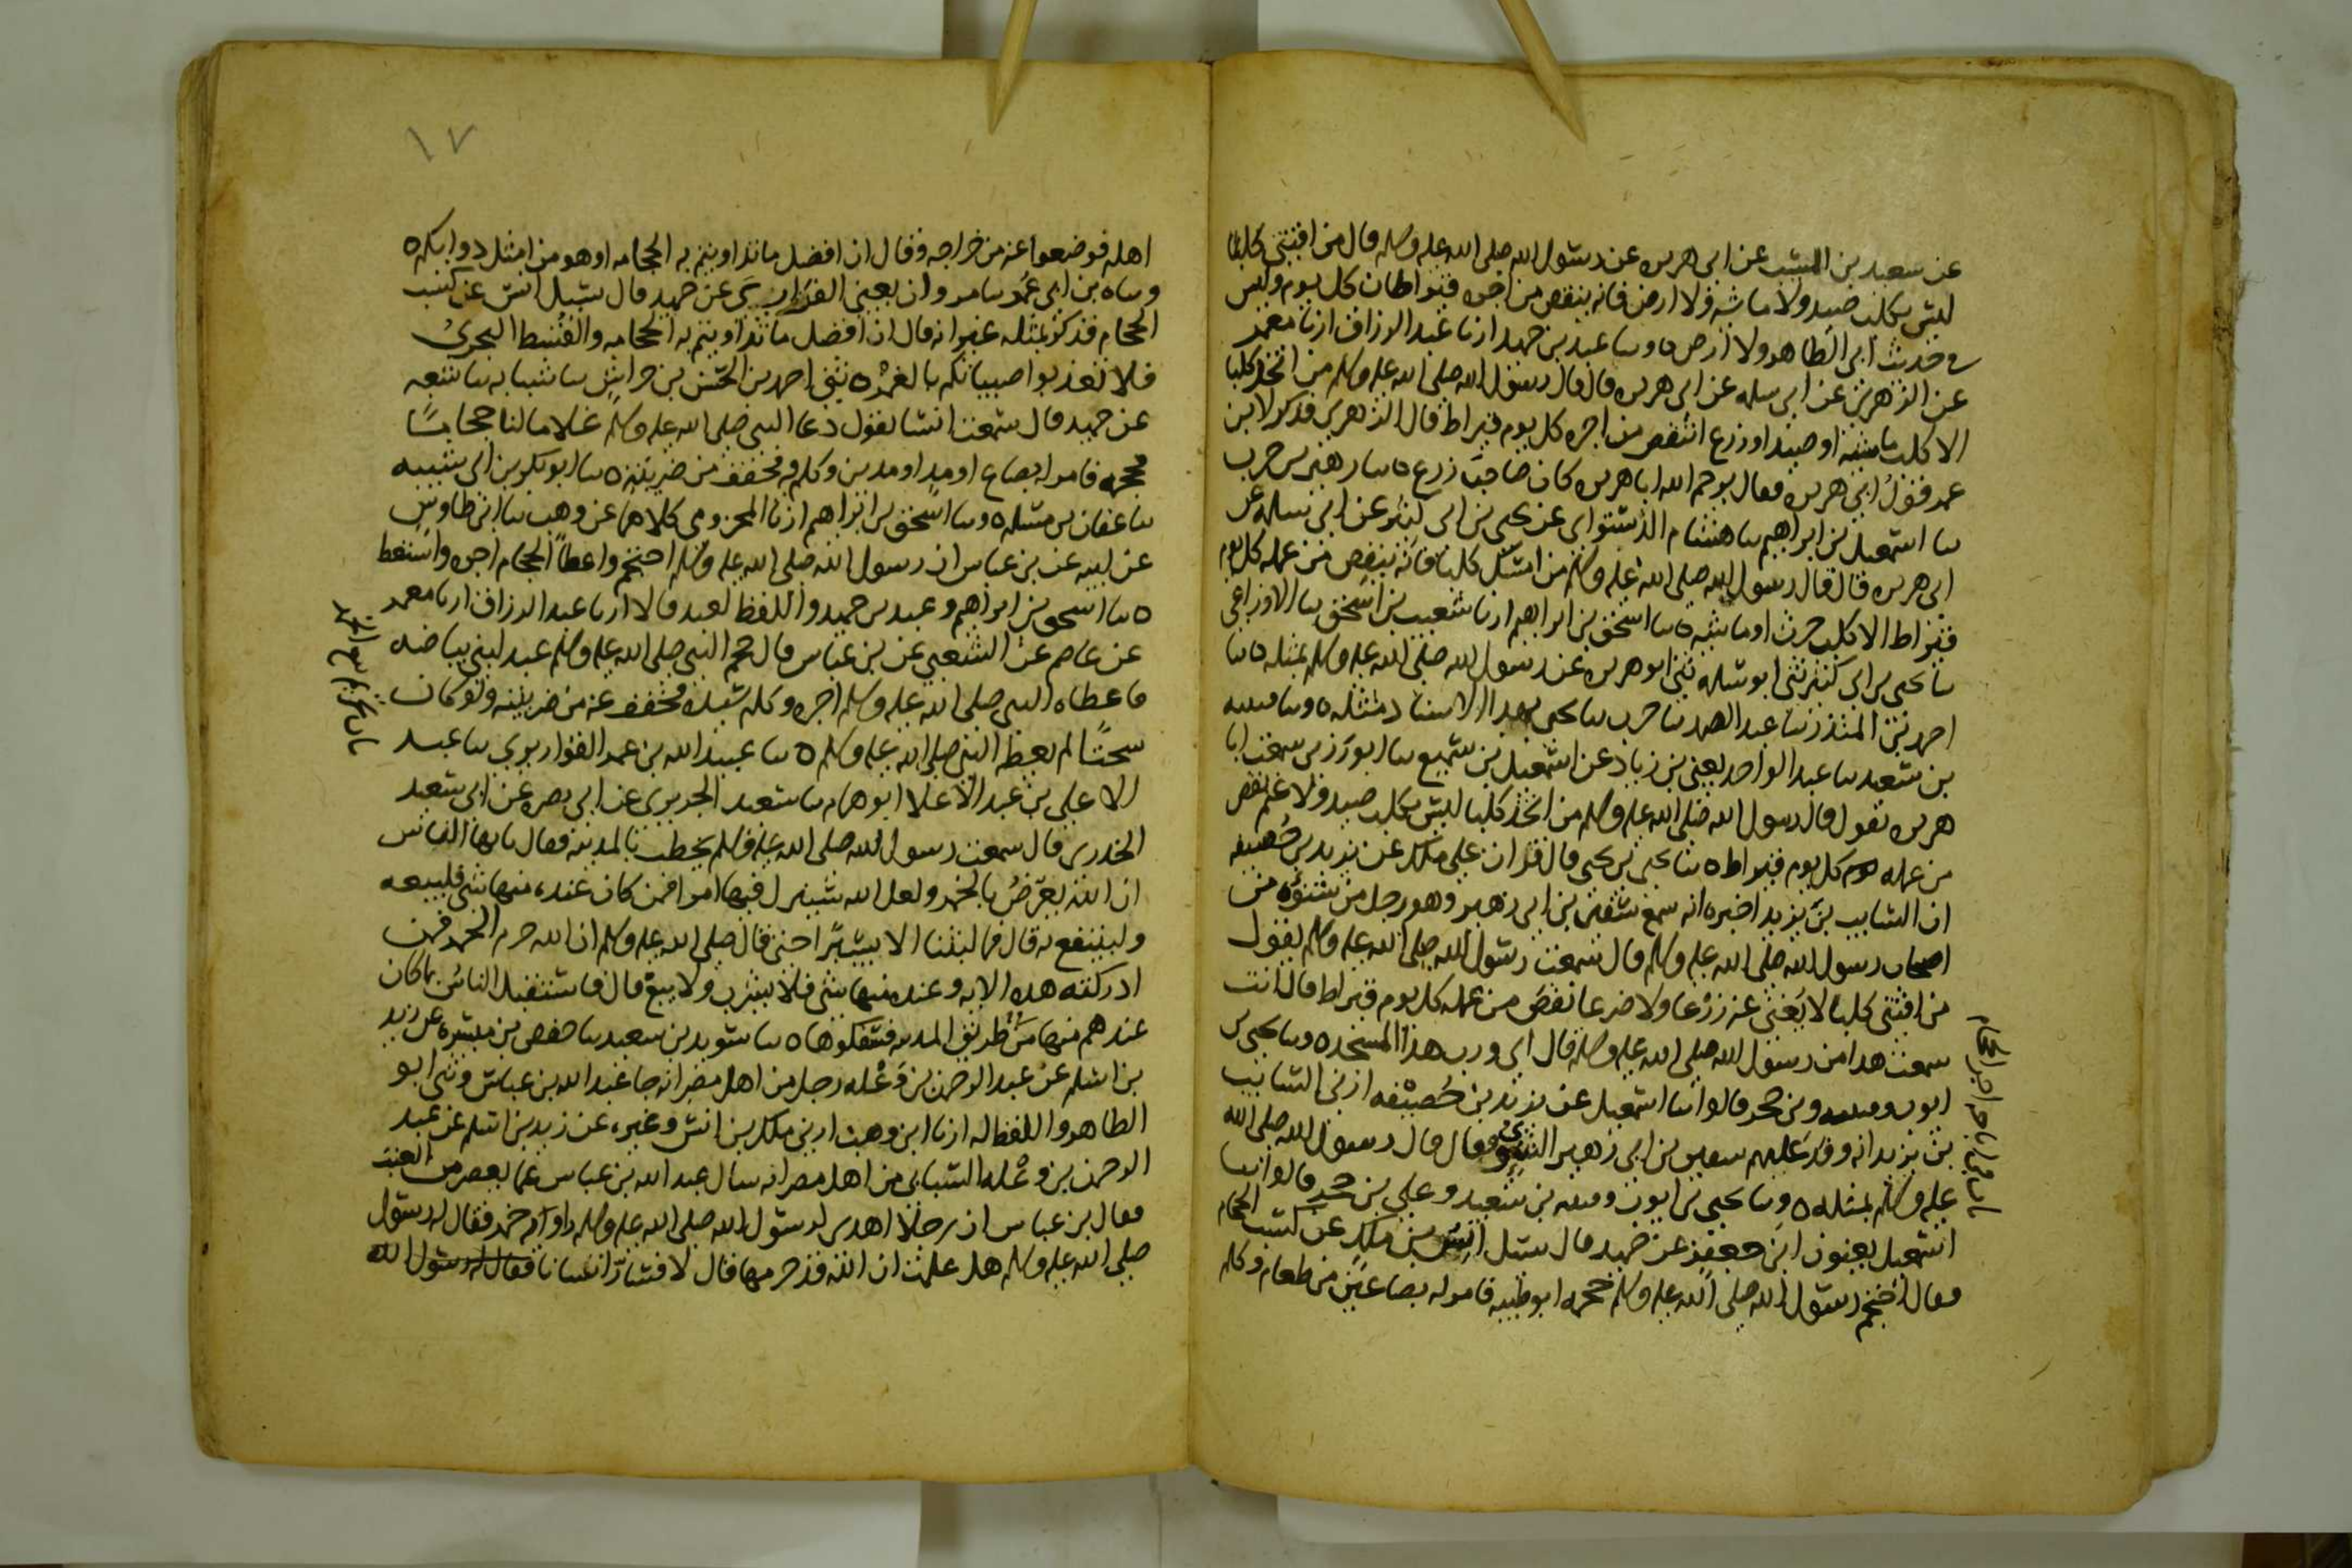 عن سعيد بن المسيب عن ابى هريره عن رسول الله صلى الله عليه وسلم قال من اقتنى كلبا
ليس بكلب صيد ولا ماشيه ولا ارض فانه ينقص من اجره قيراطان كل يوم وليس
فى حديث ابى الطاهر ولا ارض ٥ وسا عبد بن حميد ارنا عبد الرزاق ارنا معمر
عن الزهرى عن ابى سلمه عن ابى هريره قال قال رسول الله صلى الله عليه وسلم من اتخذ كلبا
الا كلب ماشيه او صيد او زرع انتقص من اجره كل يوم قيراط قال الزهرى فذكر لابن
عمر قول ابى هريره فقال يرحم الله ابا هريره كان صاحب زرع ٥ سا زهير بن حرب
سا اسمعيل بن ابراهيم سا هشام الدستواى عن يحيى بن ابى كثير عن ابى سلمه عن
ابى هريره قال قال رسول الله صلى الله عليه وسلم من امسك كلبا فانه ينقص من عمله كل يوم
قيراط الا كلب حرث او ماشيه ٥ سا اسحق بن ابراهيم ارنا شعيب بن اسحق سا الاوزاعى
سا يحيى بن ابى كثير ثنى ابو سلمه ثنى ابو هريره عن رسول الله صلى الله عليه وسلم بمثله ٥ سا
احمد بن المنذر سا عبد الصمد سا حرب سا يحيى بهذا الاسناد مثله ٥ وسا قتيبه
بن سعيد سا عبد الواحد يعنى بن زياد عن اسمعيل بن سميع سا ابو رزين سمعت ابا
هريره يقول قال رسول الله صلى الله عليه وسلم من اتخذ كلبا ليس بكلب صيد ولا غنم نقص
من عمله كل يوم قيراط ٥ سا يحيى بن يحيى قال قرات على ملك عن يزيد بن خصيفه
ان السايب بن يزيد اخبره انه سمع سفين بن ابى زهير وهو رجل من شنوءه من
اصحاب رسول الله صلى الله عليه وسلم قال سمعت رسول الله صلى الله عليه وسلم يقول
من اقتنى كلبا لا يغنى عنه زرعا ولا ضرعا نقص من عمله كل يوم قيراط قال انت
سمعت هذا من رسول الله صلى الله عليه وسلم قال اى ورب هذا المسجد ٥ وسا يحيى بن
ايوب وقتيبه وبن حجر قالوا سا اسمعيل عن يزيد بن خصيفه ارنى السايب
بن يزيد انه وفد عليهم سفين بن ابى زهير الشنوى فقال قال رسول الله صلى الله
عليه وسلم بمثله ٥ وسا يحيى بن ايوب وقتيبه بن سعيد وعلى بن حجر قالوا سا
اسمعيل يعنون ابن جعفر عن حميد قال سيل انس بن ملك عن كسب الحجام
فقال احتجم رسول الله صلى الله عليه وسلم حجمه ابو طيبه فامر له بصاعين من طعام وكلم
١٧
اهله فوضعوا عنه من خراجه وقال ان افضل ما تداويتم به الحجامه او هو من امثل دوايكم ٥
وساه بن ابى عمر سا مروان يعنى الفزارى عن حميد قال سيل انس عن كسب
الحجام فذكر بمثله غير انه قال ان افضل ما تداويتم به الحجامه والقسط البحرى
فلا تعذبوا صبيانكم بالغمز ٥ ثنى احمد بن الحسن بن خراش سا شبابه سا شعبه
عن حميد قال سمعت انسا يقول دعا النبى صلى الله عليه وسلم غلاما لنا حجاما
فحجمه فامر له بصاع او مد او مدين وكلم فيه فخفف من ضريبته ٥ سا ابو بكر بن ابى شيبه
سا عفان بن مسلم ٥ وسا اسحق بن ابراهيم ارنا المخزومى كلاهما عن وهيب سا ابن طاوس
عن ابيه عن بن عباس ان رسول الله صلى الله عليه وسلم احتجم واعطا الحجام اجره واستعط
٥ سا اسحق بن ابراهيم وعبد بن حميد واللفظ لعبد قالا ارنا عبد الرزاق ارنا معمر
عن عاصم عن الشعبى عن بن عباس قال حجم النبى صلى الله عليه وسلم عبد لبنى بياضه
فاعطاه النبى صلى الله عليه وسلم اجره وكلم سيده فخفف عنه من ضريبته ولو كان
سحتا لم يعطه النبى صلى الله عليه وسلم ٥ سا عبيد الله بن عمر القواريرى سا عبد
الاعلى بن عبد الاعلا ابو همام سا سعيد الجريرى عن ابى نضره عن ابى سعيد
الخدرى قال سمعت رسول الله صلى الله عليه وسلم يخطب بالمدينه فقال يايها الناس
ان الله يعرض بالخمر ولعل الله سينزل فيها امرا فمن كان عنده منها شى فليبعه
ولينتفع به قال فما لبثنا الا يسيرا حتى قال صلى الله عليه وسلم ان الله حرم الخمر فمن
ادركته هذه الايه وعنده منها شى فلا يشرب ولا يبع قال فاستقبل الناس بما كان
عندهم منها من طريق المدينه فسفكوها ٥ سا سويد بن سعيد سا حفص بن ميسره عن زيد
بن اسلم عن عبد الرحمن بن وعله رجل من اهل مصر انه جا عبد الله بن عباس وثنى ابو
الطاهر واللفظ له ارنا ابن وهب ارنى ملك بن انس وغيره عن زيد بن اسلم عن عبد
الرحمن بن وعله السباى من اهل مصر انه سال عبد الله بن عباس عما يعصر من العنب
فقال بن عباس ان رجلا اهدى لرسول الله صلى الله عليه وسلم راويه خمر فقال له رسول
صلى الله عليه وسلم هل علمت ان الله قد حرمها قال لا فسار انسانا فقال له رسول الله